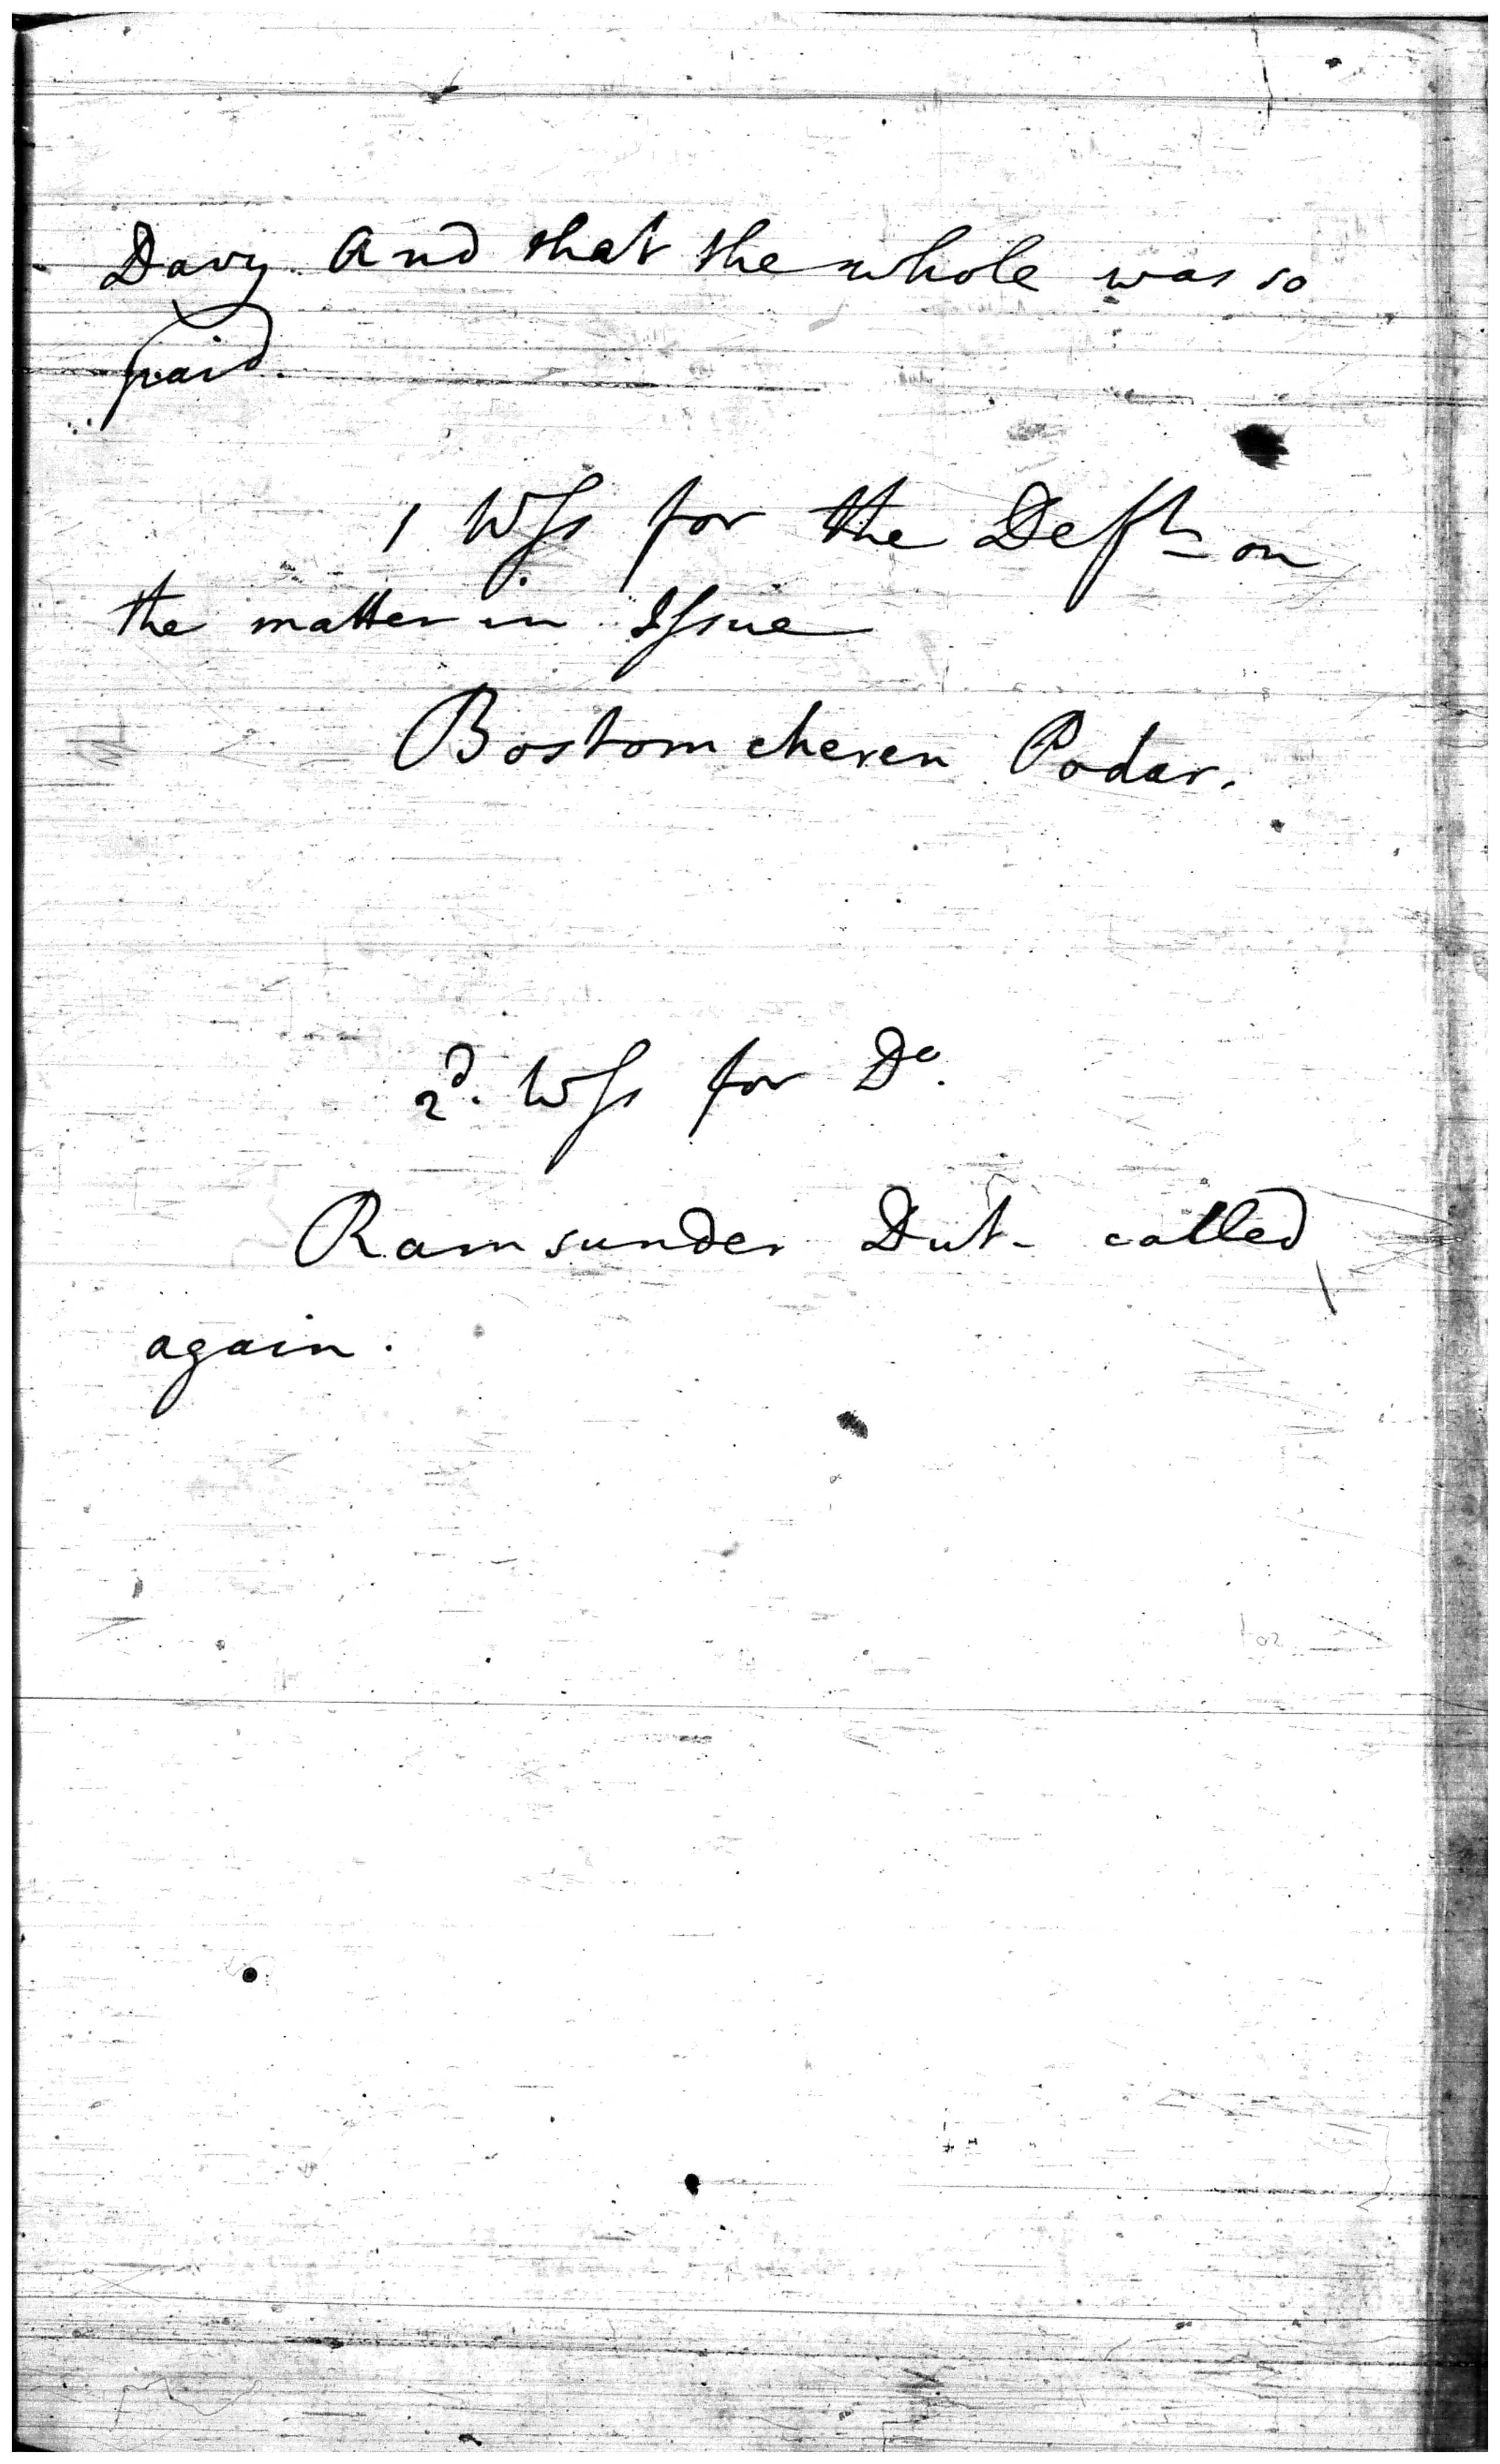 Davy And that the whole was so
paid.
1 Wss for the Deft on
the matter in Issue
Bostomcheren Podar.
2d. Wss for Do.
Ramsunder Dut - called
again.